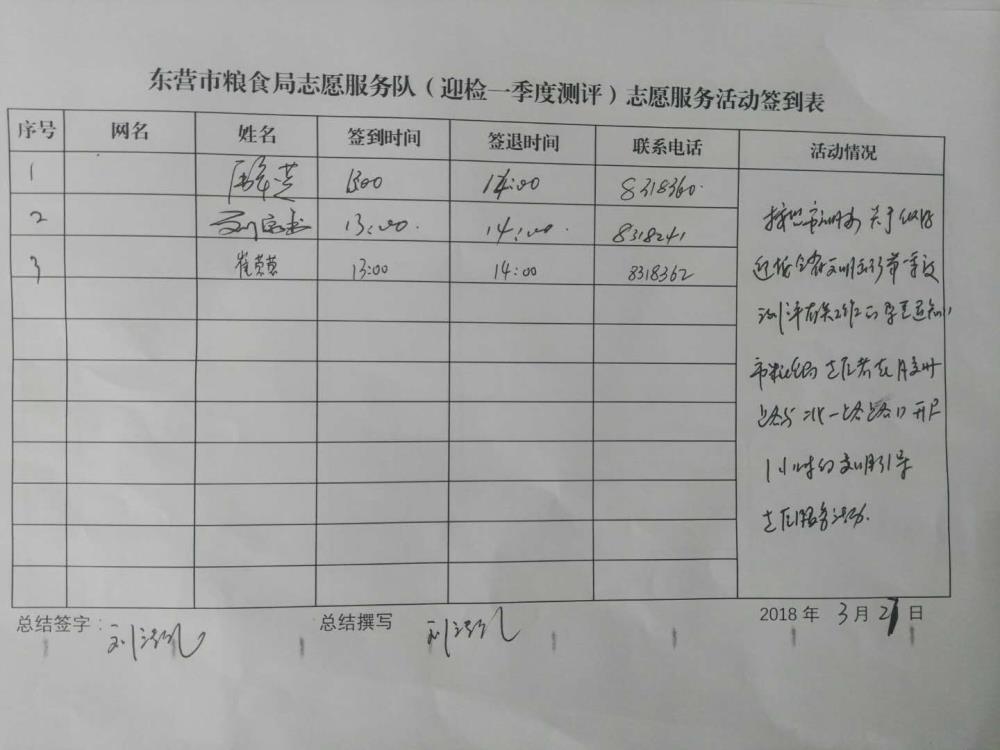 东营市粮食局志愿服务队（迎检一季度测评）志愿服务活动签到表
序号 网名 姓名 签到时间 签退时间 联系电话 活动情况
1 13:00 14:00 8318360
2 13:00 14:00 8318241
3 崔荣荣 13:00 14:00 8318362
市文明办 关于做好
迎接全省文明城市第一季度
测评有关工作的 通知
市粮食局 志愿者在胶州
路与北一路路口 开展
1小时的文明引导
志愿服务活动.
总结签字： 刘 总结撰写 刘 2018 年 3 月 21 日